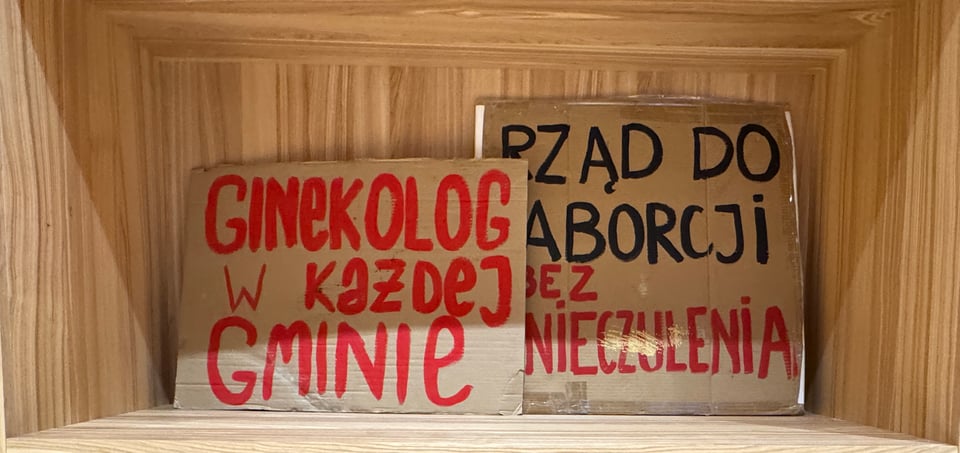 GINEKOLOG
W KAŻDEJ
GMINIE
RZĄD DO
ABORCJI
BEZ
ZNIECZULENIA